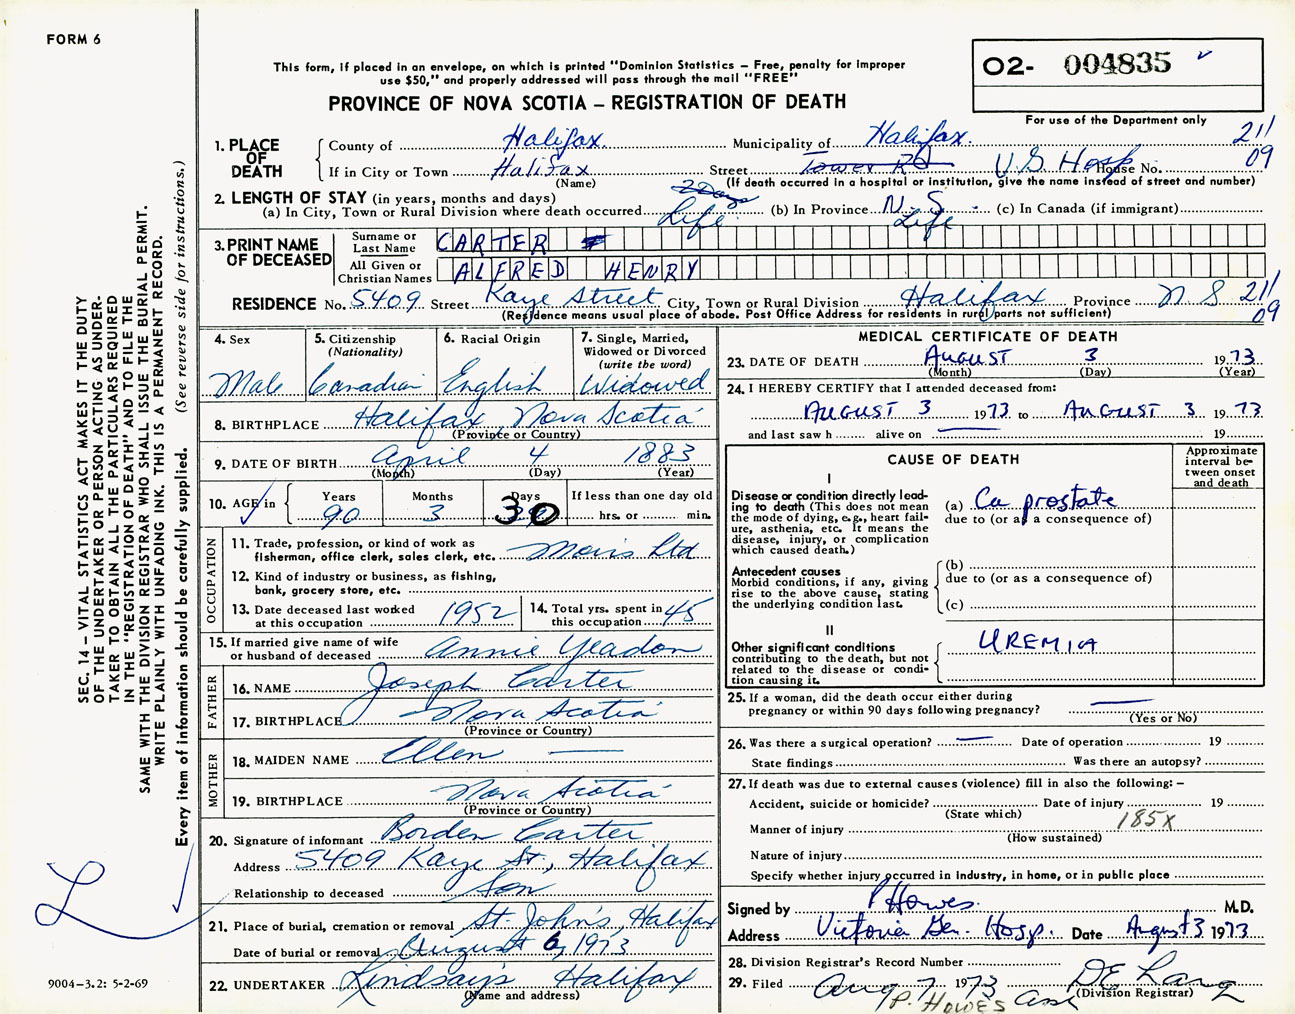 FORM 6
This form, if placed in an envelope, on which is printed "Dominion Statistics – Free, penalty for improper
use $50," and properly addressed will pass through the mail "FREE"
PROVINCE OF NOVA SCOTIA – REGISTRATION OF DEATH
O2- 004835
For use of the Department only
211
09
1. PLACE OF DEATH
County of Halifax. Municipality of Halifax.
If in City or Town Halifax Street Tower Rd V.G. Hosp House No.
(Name) (If death occurred in a hospital or institution, give the name instead of street and number)
2. LENGTH OF STAY (in years, months and days) 2 Days
(a) In City, Town or Rural Division where death occurred Life (b) In Province N.S. Life (c) In Canada (if immigrant)
3. PRINT NAME OF DECEASED
Surname or Last Name CARTER
All Given or Christian Names ALFRED HENRY
RESIDENCE No. 5409 Street Kaye Street City, Town or Rural Division Halifax Province N S 211
09
(Residence means usual place of abode. Post Office Address for residents in rural parts not sufficient)
4. Sex
Male
5. Citizenship
(Nationality)
Canadian
6. Racial Origin
English
7. Single, Married,
Widowed or Divorced
(write the word)
Widowed
8. BIRTHPLACE Halifax, Nova Scotia
(Province or Country)
9. DATE OF BIRTH April 4 1883
(Month) (Day) (Year)
10. AGE in Years 90 Months 3 Days 30 If less than one day old
hrs. or min.
OCCUPATION
11. Trade, profession, or kind of work as
fisherman, office clerk, sales clerk, etc. Moirs Ltd
12. Kind of industry or business, as fishing,
bank, grocery store, etc.
13. Date deceased last worked
at this occupation 1952
14. Total yrs. spent in
this occupation 45
15. If married give name of wife
or husband of deceased Annie Yeadon
FATHER
16. NAME Joseph Carter
17. BIRTHPLACE Nova Scotia
(Province or Country)
MOTHER
18. MAIDEN NAME Ellen —
19. BIRTHPLACE Nova Scotia
(Province or Country)
20. Signature of informant Borden Carter
Address 5409 Kaye St., Halifax
Relationship to deceased Son
21. Place of burial, cremation or removal St. John's, Halifax
Date of burial or removal August 6, 1973
22. UNDERTAKER Lindsay's Halifax
(Name and address)
MEDICAL CERTIFICATE OF DEATH
23. DATE OF DEATH AUGUST 3 1973
(Month) (Day) (Year)
24. I HEREBY CERTIFY that I attended deceased from:
AUGUST 3 1973 to AUGUST 3 1973
and last saw h alive on — 19
CAUSE OF DEATH
Approximate
interval be-
tween onset
and death
I
Disease or condition directly lead-
ing to death (This does not mean
the mode of dying, e.g., heart fail-
ure, asthenia, etc. It means the
disease, injury, or complication
which caused death.)
(a) Ca prostate
due to (or as a consequence of)
Antecedent causes
Morbid conditions, if any, giving
rise to the above cause, stating
the underlying condition last.
(b)
due to (or as a consequence of)
(c)
II
Other significant conditions
contributing to the death, but not
related to the disease or condi-
tion causing it.
UREMIA
25. If a woman, did the death occur either during
pregnancy or within 90 days following pregnancy? —
(Yes or No)
26. Was there a surgical operation? — Date of operation 19
State findings Was there an autopsy?
27. If death was due to external causes (violence) fill in also the following: –
Accident, suicide or homicide? Date of injury 19
(State which)
185X
Manner of injury
(How sustained)
Nature of injury
Specify whether injury occurred in industry, in home, or in public place
Signed by P Howes. M.D.
Address Victoria Gen. Hosp. Date August 3 1973
28. Division Registrar's Record Number
29. Filed Aug 7 1973 DE Lang
(Division Registrar)
P. HOWES
SEC. 14 – VITAL STATISTICS ACT MAKES IT THE DUTY
OF THE UNDERTAKER OR PERSON ACTING AS UNDER-
TAKER TO OBTAIN ALL THE PARTICULARS REQUIRED
IN THE "REGISTRATION OF DEATH" AND TO FILE THE
SAME WITH THE DIVISION REGISTRAR WHO SHALL ISSUE THE BURIAL PERMIT.
WRITE PLAINLY WITH UNFADING INK. THIS IS A PERMANENT RECORD.
Every item of information should be carefully supplied. (See reverse side for instructions.)
9004-3.2: 5-2-69